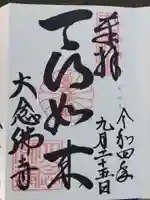 奉拝
令和四年
九月二十五日
天得如来
大念佛寺